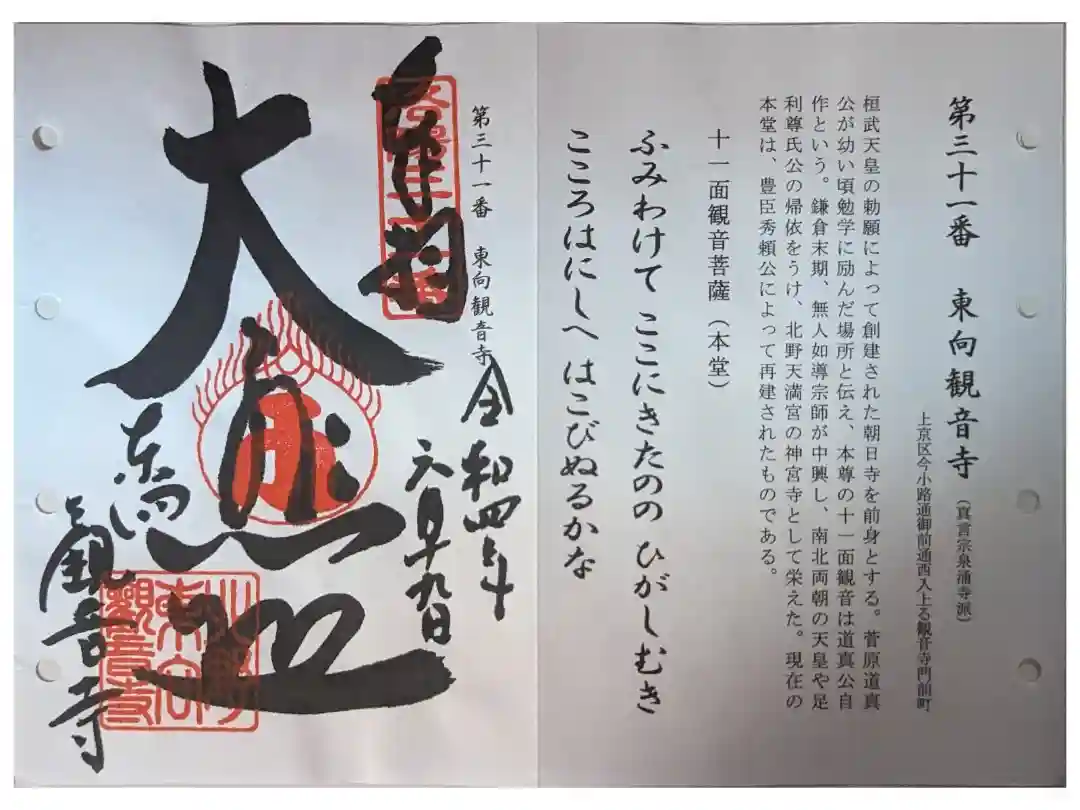 第三十一番　東向観音寺（真言宗泉涌寺派）
上京区今小路通御前通西入上る観音寺門前町
桓武天皇の勅願によって創建された朝日寺を前身とする。菅原道真
公が幼い頃勉学に励んだ場所と伝え、本尊の十一面観音は道真公自
作という。鎌倉末期、無人如導宗師が中興し、南北両朝の天皇や足
利尊氏公の帰依をうけ、北野天満宮の神宮寺として栄えた。現在の
本堂は、豊臣秀頼公によって再建されたものである。
十一面観音菩薩（本堂）
ふみわけて ここにきたのの ひがしむき
こころはにしへ はこびぬるかな
第三十一番　東向観音寺
令和四年
六月九日
奉拝
大悲殿
東向
観音寺